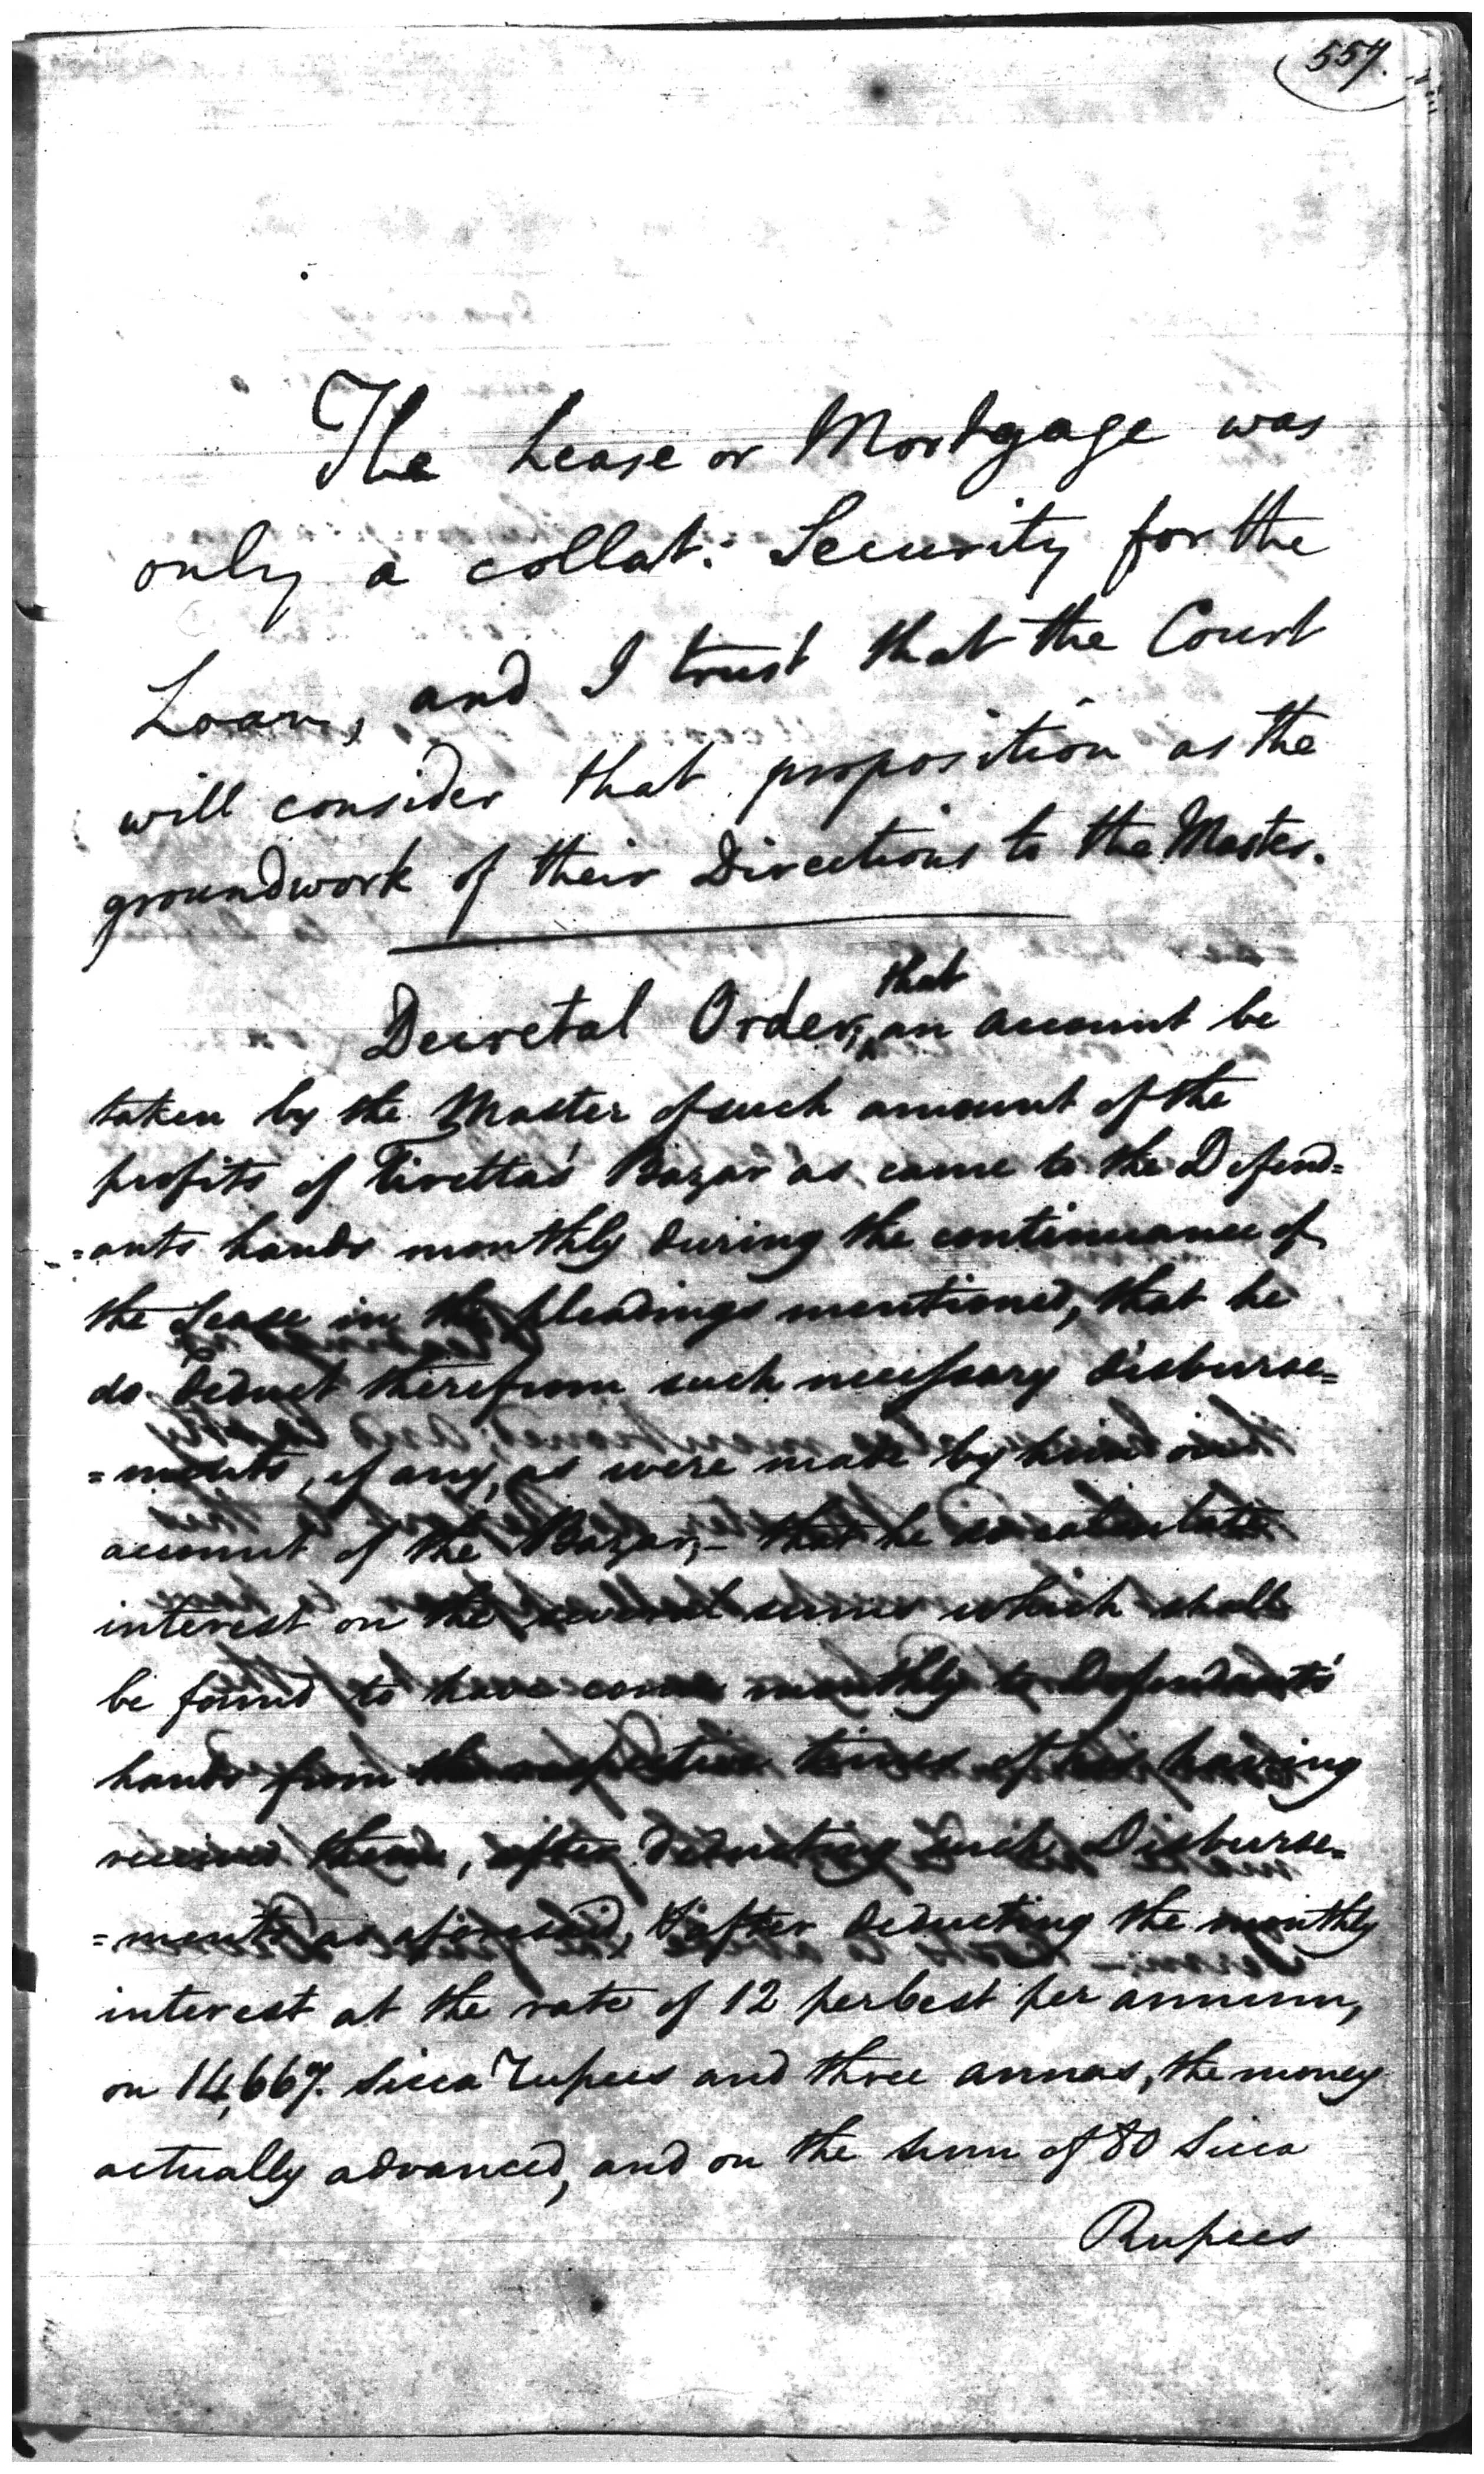 557.
The Lease or Mortgage was
only a collat: Security for the
Loan, and I trust that the Court
will consider that proposition as the
groundwork of their Directions to the Master.
that
Decretal Order, an account be
taken by the Master of such amount of the
profits of Tiretta's Bazar as came to the Defend=
=ants hands monthly during the continuance of
the Lease in the pleadings mentioned, that he
do deduct therefrom such necessary disburse=
=ments, if any, as were made by him on
account of the Bazar,- that he do calculate
interest on the several sums which shall
be found to have come monthly to Defendants'
hands from the respective times of his having
received them, after deducting such Disburse=
=ments as aforesaid, & after deducting the monthly
interest at the rate of 12 per Cent per annum,
on 14,667. Sicca Rupees and three annas, the money
actually advanced, and on the sum of 80 Sicca
Rupees